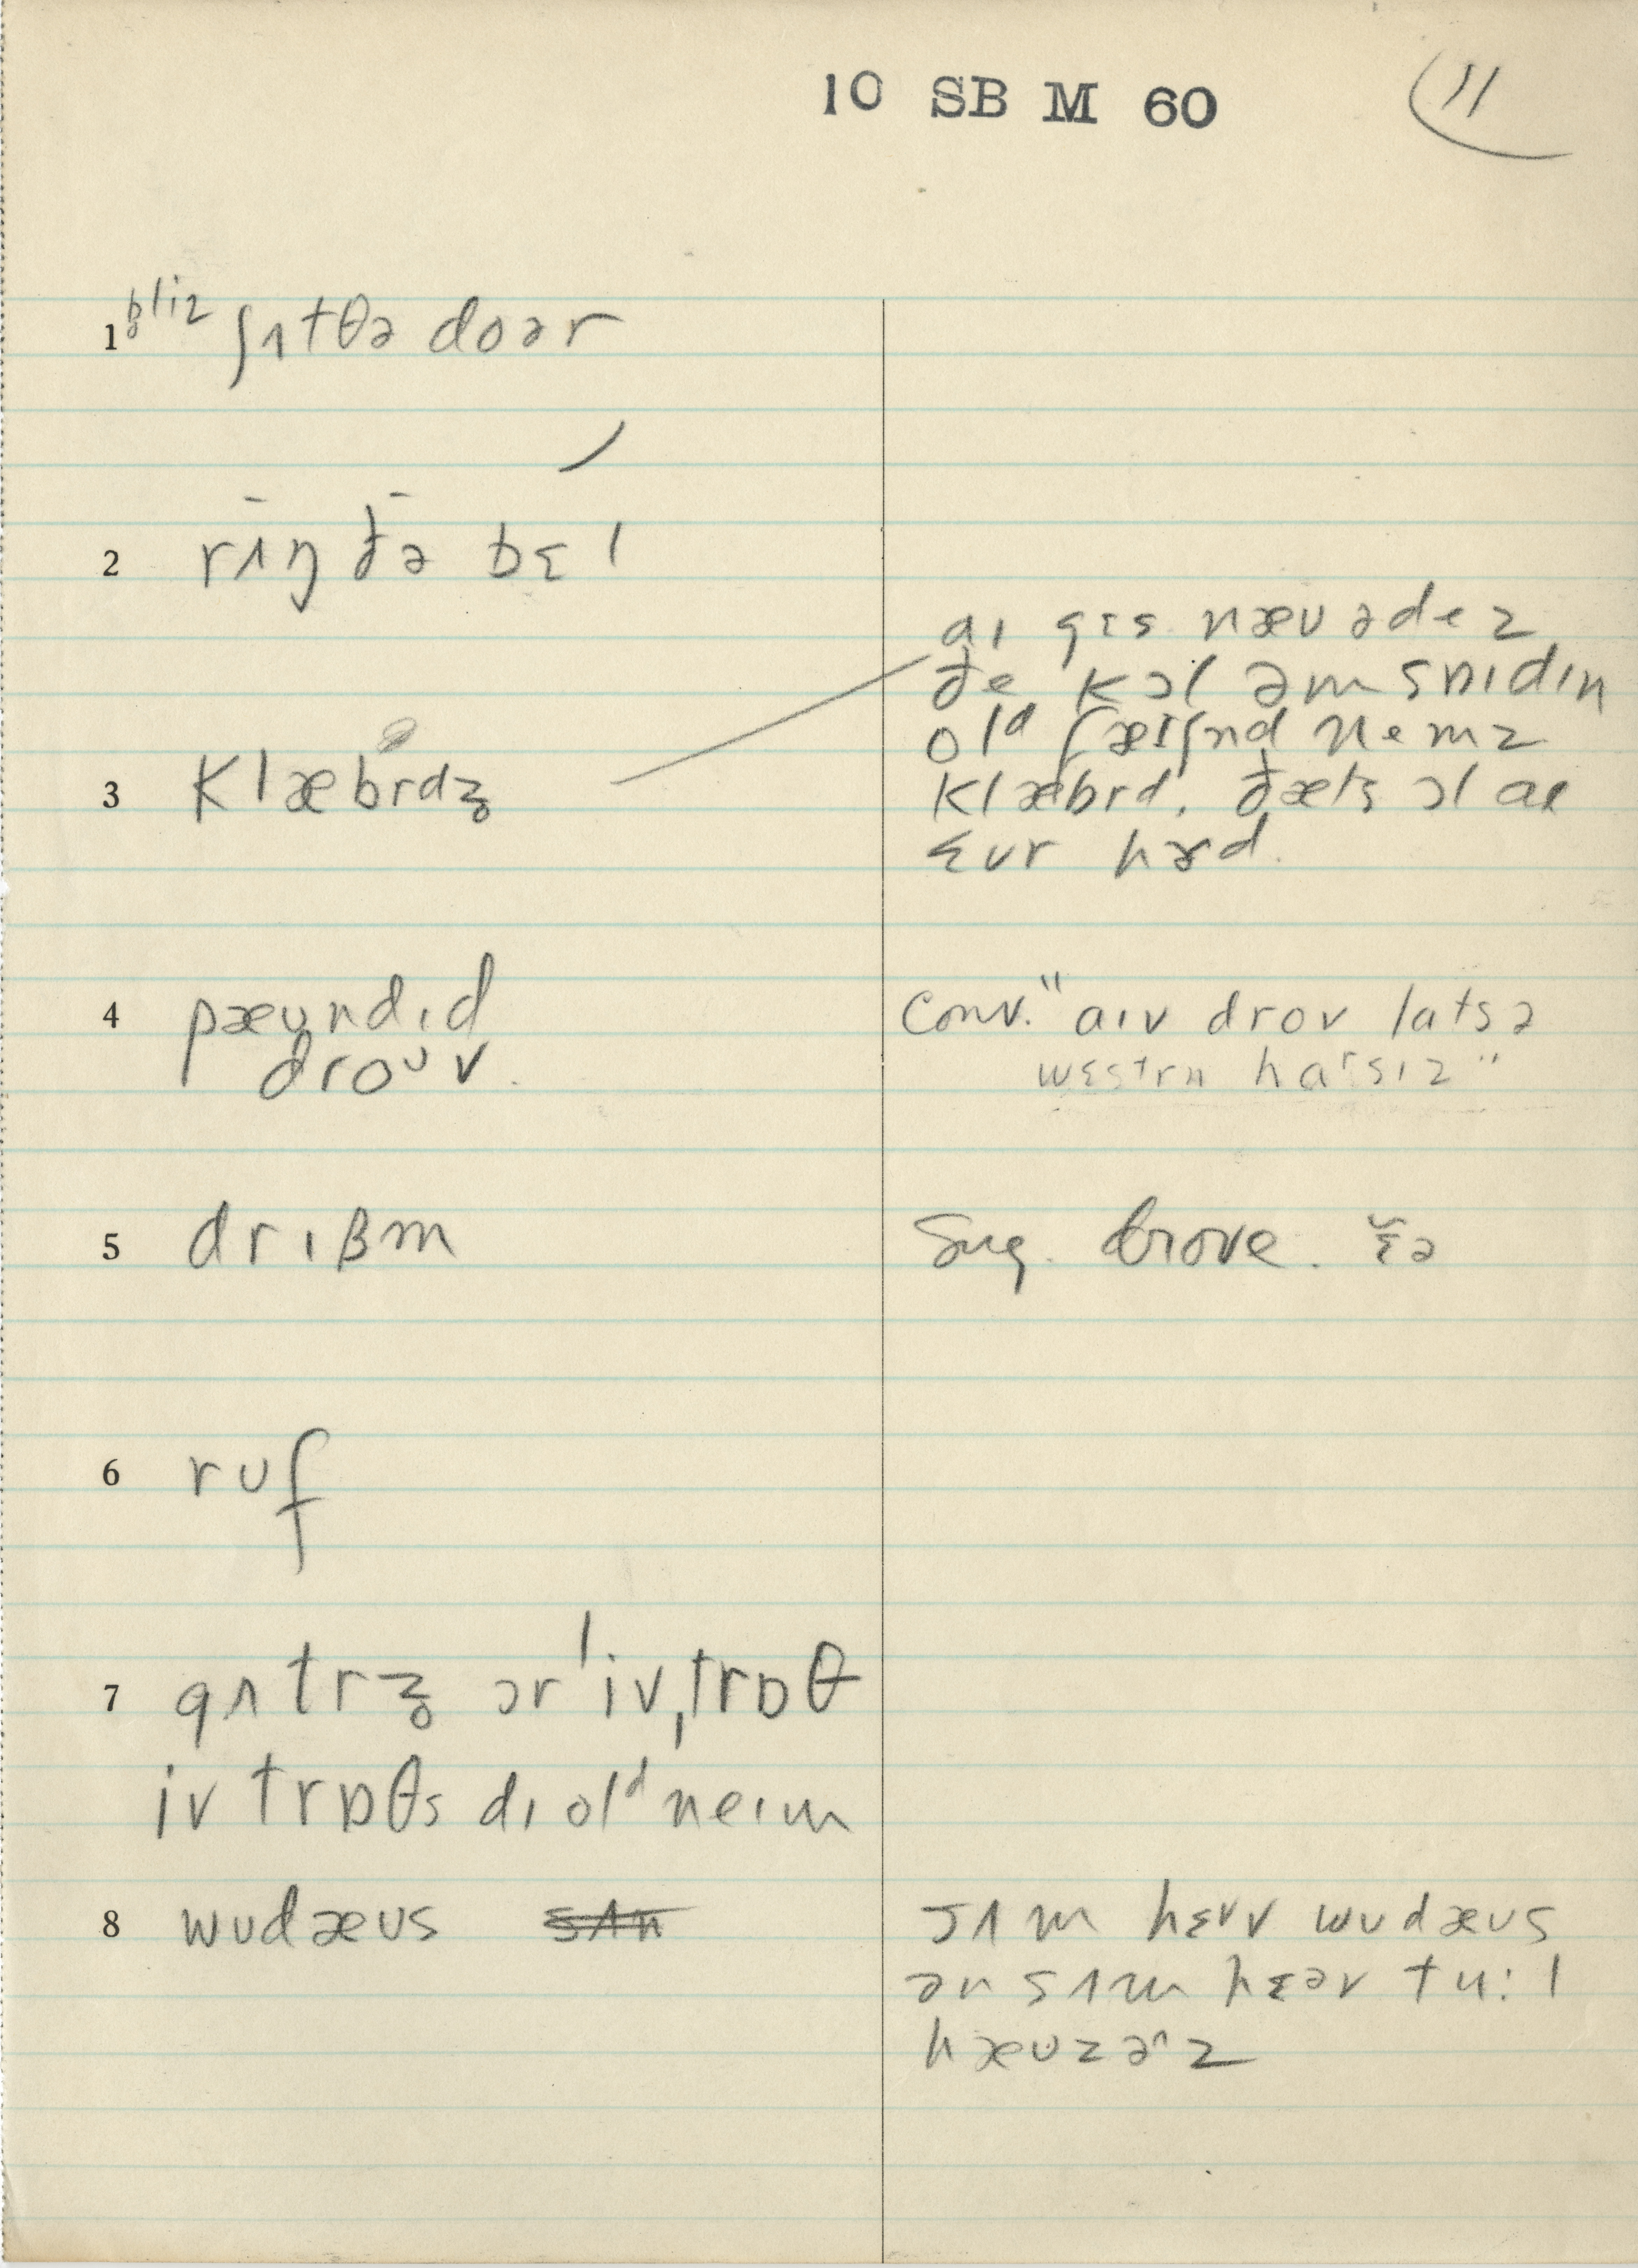 10 SB M 60
11
1 b̥liz ʃɪtθə doər
2 rɪŋ ðə bɛl
aɪ gɪs næʊədez
3 klæbrdz̥
ðe kɔl əm snidɪn
olᵈ fæɪʃnd nemz
klæbrd. ðæts ɔl aɪ
ɛvr hɝd.
4 pæʊndɪd
droᶷv.
conv. "aɪv drov latsə
wɛstrn haʳsɪz"
5 drɪβm
Sug. drove. ɛ̆ə
6 rʊf
7 gʌtrz̥ ɔr ˈivˌtrɒθ
iv trɒθs dɪ olᵈ neɪm
8 wʊdæʊs s̶ʌ̶m̶
sʌm hɛvv wʊdæʊs
ən sʌm hɛəv tu:l
hæʊzəⁿz